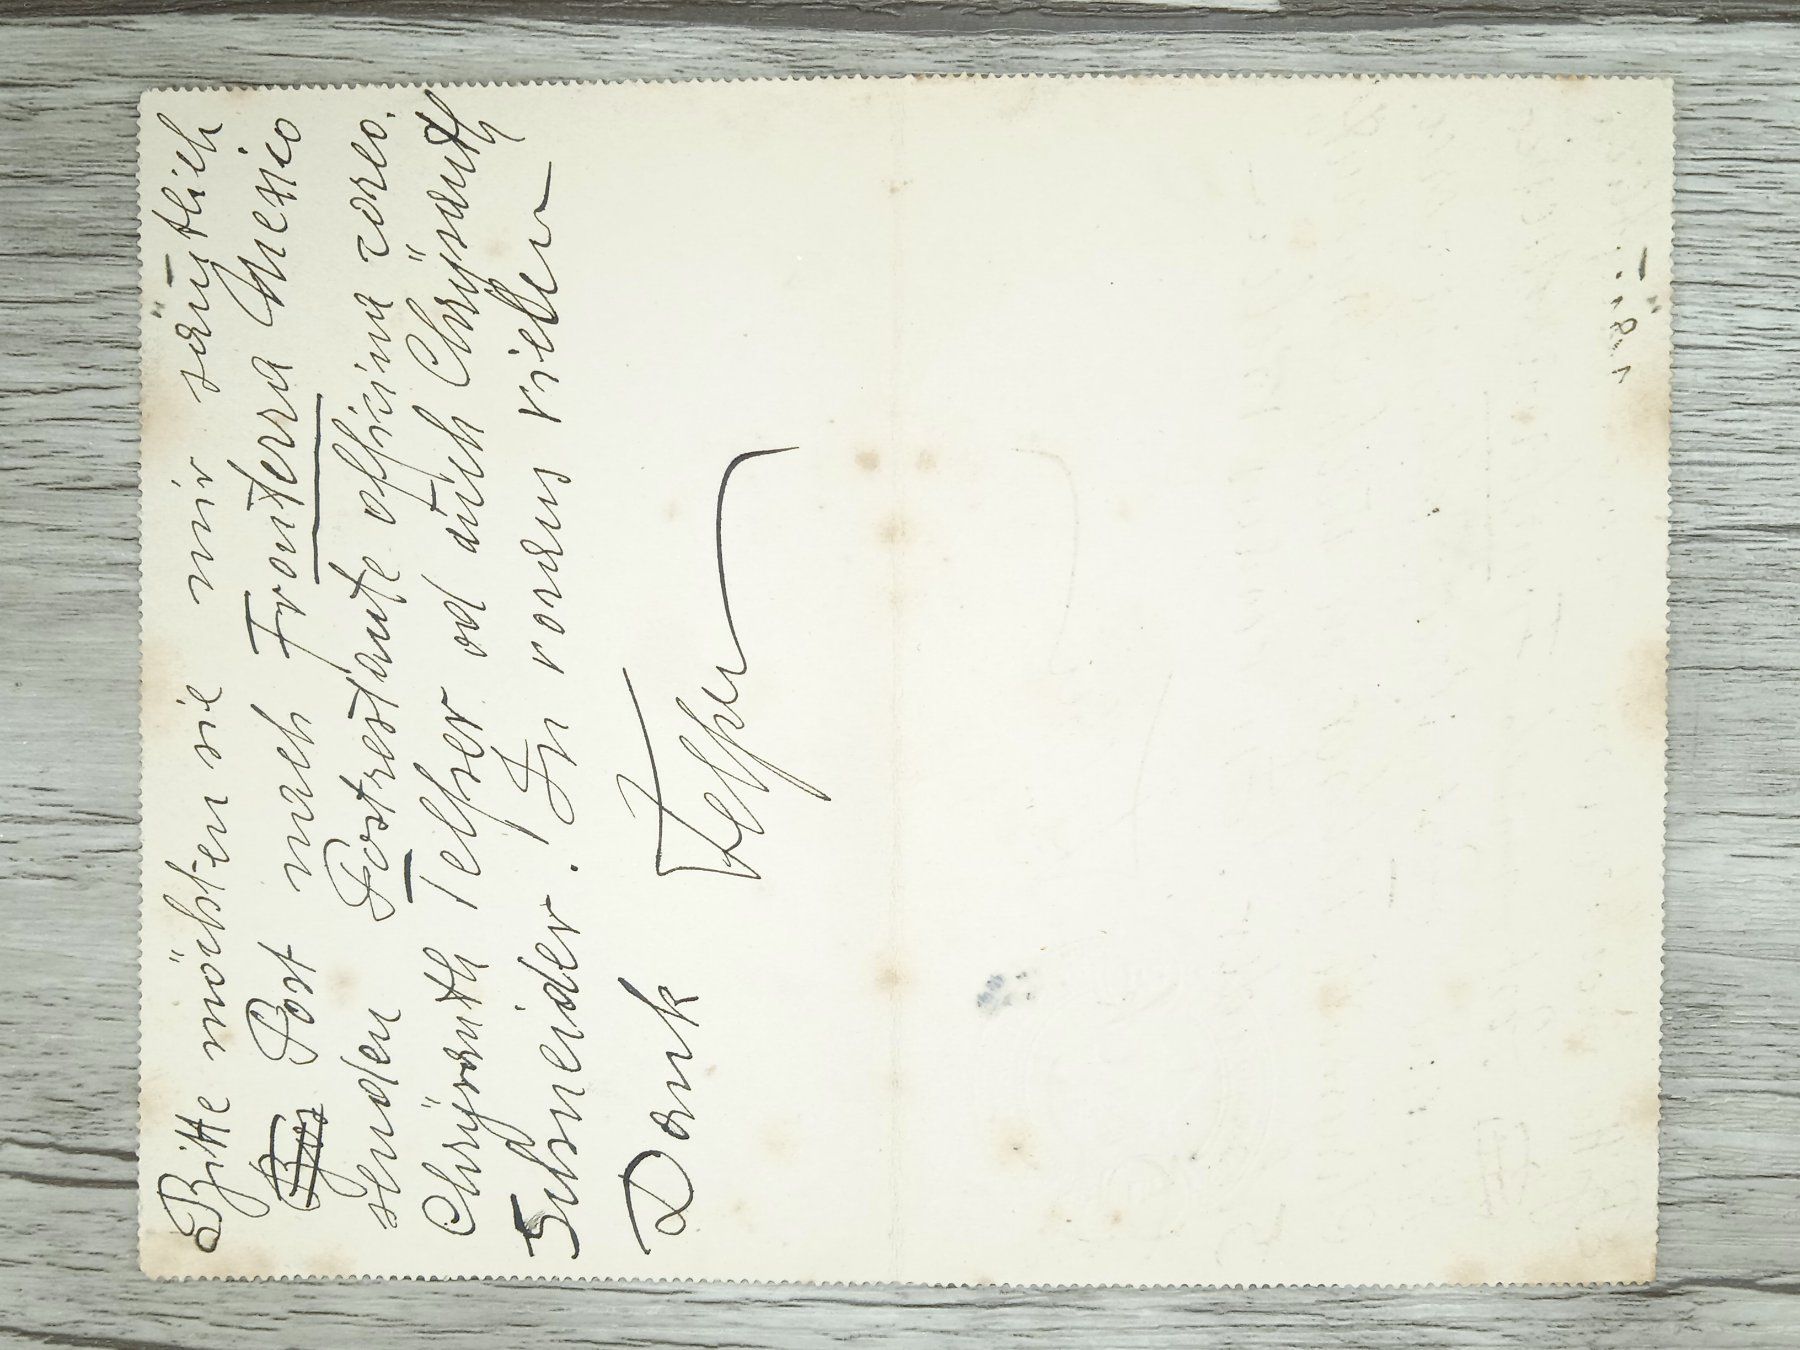 Bitte möchten sie mir sämtlich
Post nach Frontera Mexico
senden Postrestante officina coreo.
Chrÿsanth Telfser od auch Chrÿsanth
Schneider! In voraus vielen
Dank Telfser